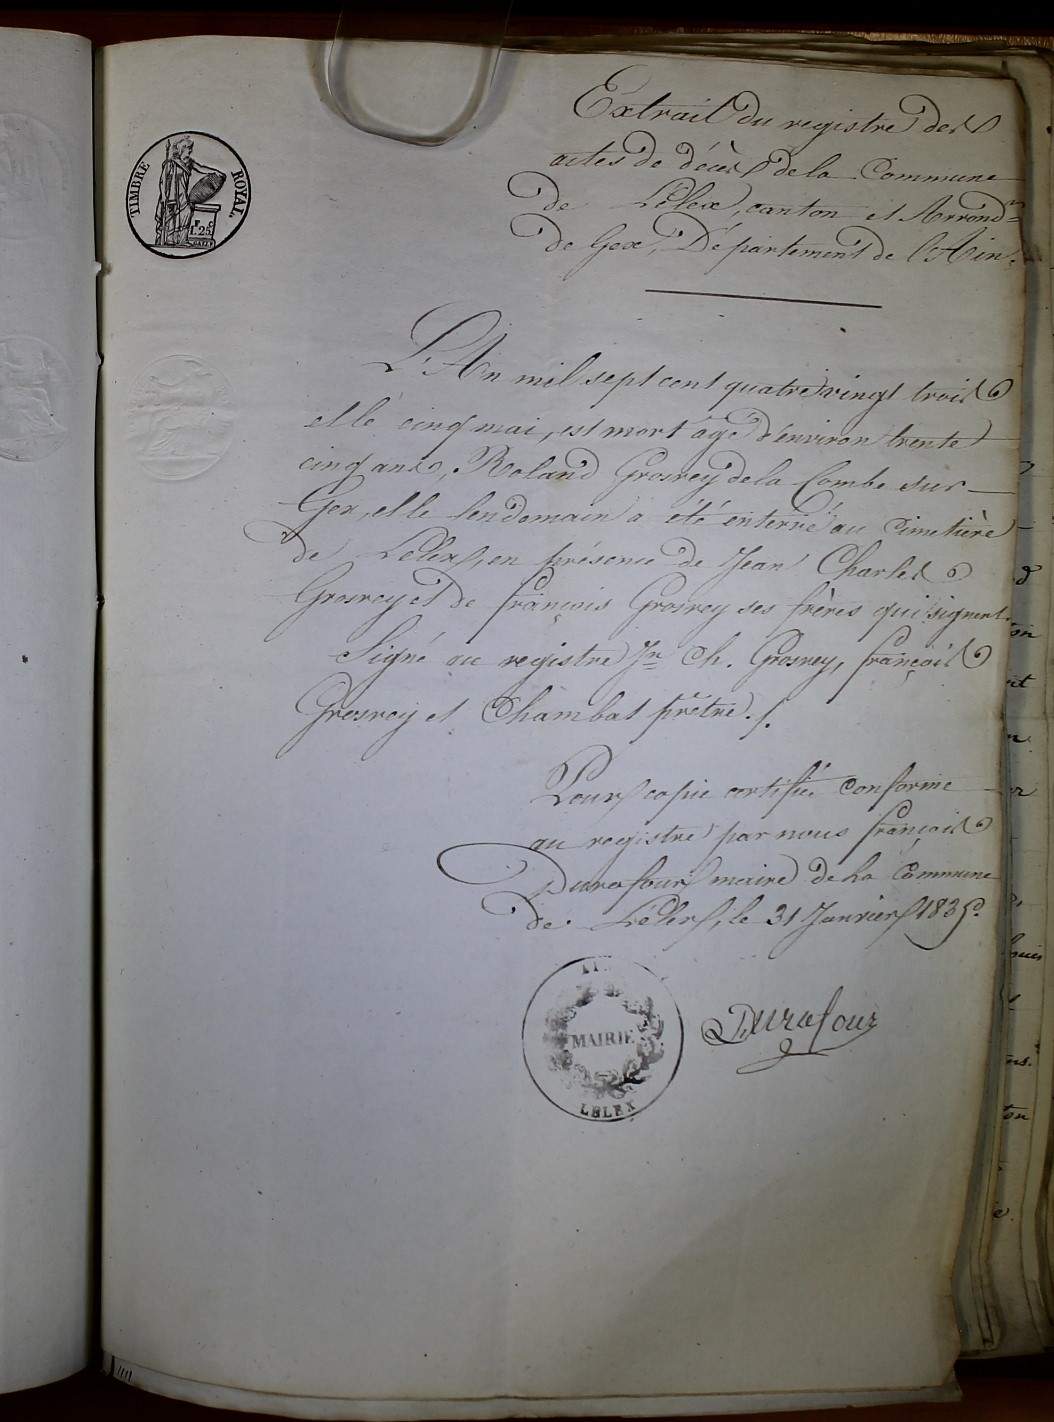 TIMBRE ROYAL.
1F. 25C.
Extrait du registre des
actes de décès de la Commune
de Lélex, canton et Arrondt
de Gex, Département de l'Ain.
L'An mil sept cent quatre vingt trois
et le cinq mai, est mort âgé d'environ trente
cinq ans, Roland Grosrey de la Combe sur
Gex, et le lendemain a été enterré au Cimetière
de Lélex, en présence de Jean Charles
Grosrey et de françois Grosrey ses frères qui signent.
Signé au registre Jn Ch. Grosrey, françois
Grosrey et Chambat prêtre ./.
Pour copie certifiée conforme
au registre par nous françois
Durafour maire de la Commune
de Lélex, le 31 Janvier 1835.
AIN
MAIRIE
LELEX
Durafour